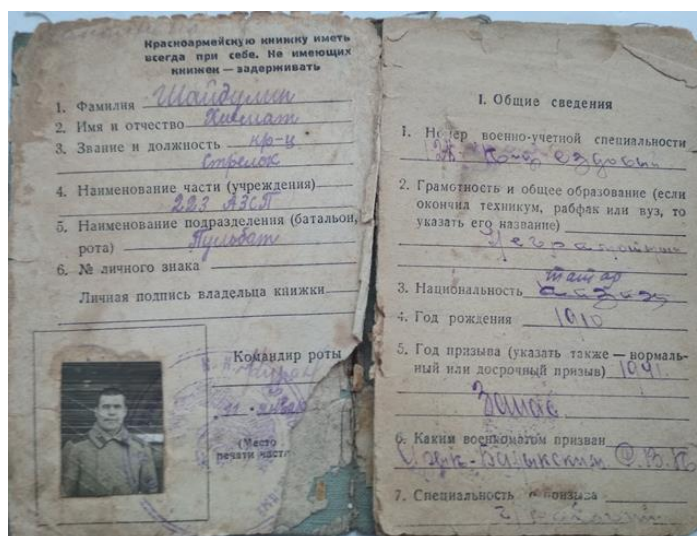 Красноармейскую книжку иметь
всегда при себе. Не имеющих
книжек — задерживать
1. Фамилия Шайдулин
2. Имя и отчество Хикмат
3. Звание и должность кр-ц
стрелок
4. Наименование части (учреждения)
223 АЗСП
5. Наименование подразделения (батальон,
рота) Пульбат
6. № личного знака
Личная подпись владельца книжки
Командир роты
(Место
печати части
I. Общие сведения
1. Номер военно-учетной специальности
ездовый
2. Грамотность и общее образование (если
окончил техникум, рабфак или вуз, то
указать его название)
Неграмотный
татар
3. Национальность
4. Год рождения 1910
5. Год призыва (указать также — нормаль-
ный или досрочный призыв) 1941.
Запас
6. Каким военкоматом призван
7. Специальность до призыва